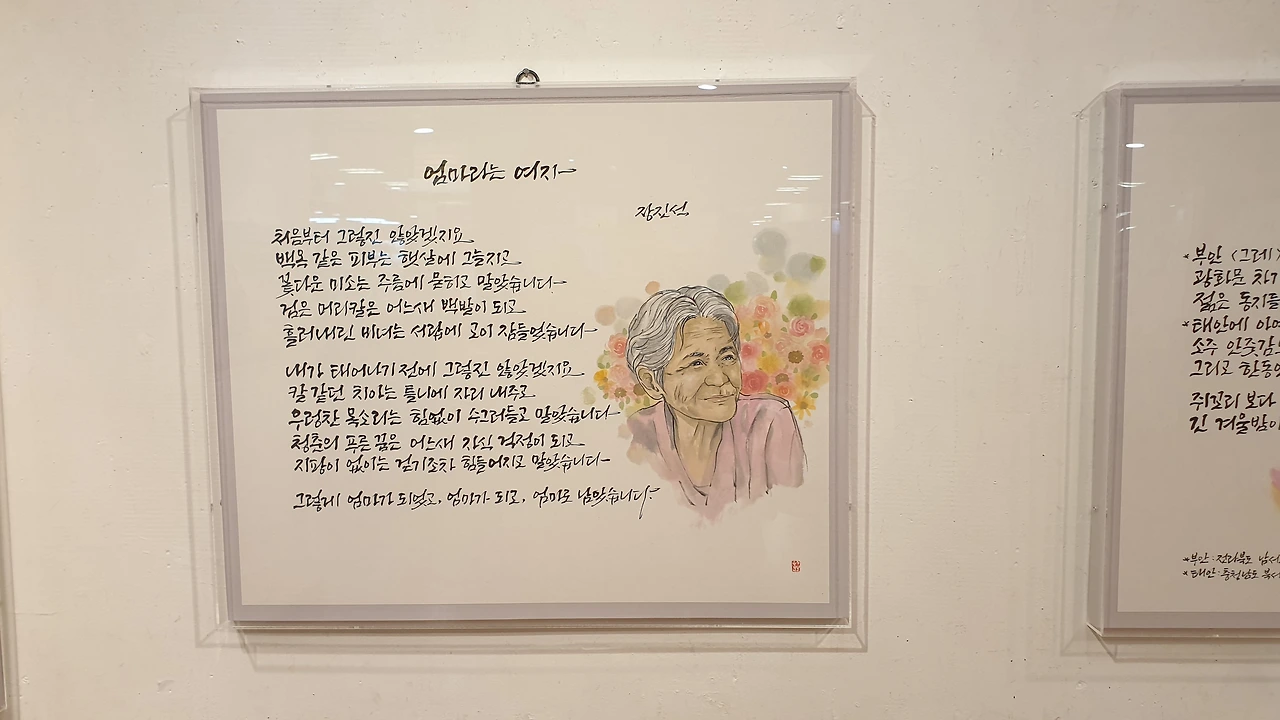 엄마라는 여자
장진석
처음부터 그렇진 않았겠지요
백옥 같은 피부는 햇살에 그늘지고
꽃다운 미소는 주름에 묻히고 말았습니다
검은 머리칼은 어느새 백발이 되고
흘러내린 비녀는 서랍에 고이 잠들었습니다
내가 태어나기 전에 그렇진 않았겠지요
칼 같던 치아는 틀니에 자리 내주고
우렁찬 목소리는 힘없이 수그러들고 말았습니다
청춘의 푸른 꿈은 어느새 자식 걱정이 되고
지팡이 없이는 걷기조차 힘들어지고 말았습니다
그렇게 엄마가 되었고, 엄마가 되고, 엄마로 남았습니다
*부안 <그레>
광화문 차기
젊은 동지들
*태안에
소주 안줏감
그리고 한동안
쥐꼬리 보다
긴 겨울밤이
*부안:전라북도 남서
*태안:충청남도 북서